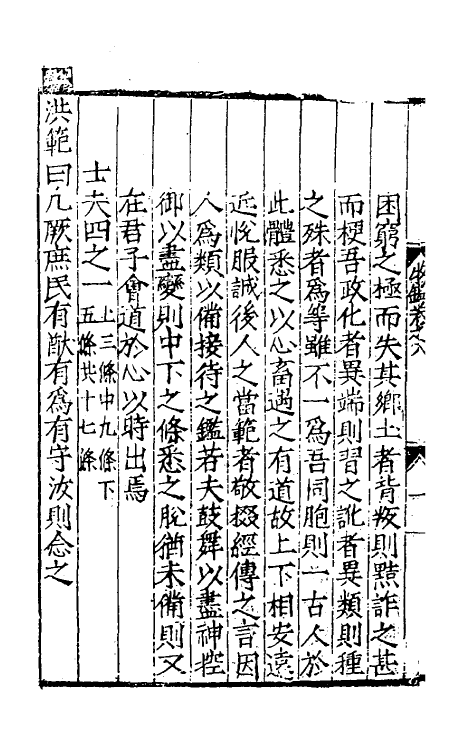 困窮之極而失其鄉土者背叛則黠詐之甚
而梗吾政化者異端則習之訛者異類則種
之殊者爲等雖不一爲吾同胞則一古人於
此體悉之以心畜遇之有道故上下相安遠
近悅服誠後人之當範者敬掇經傳之言因
人爲類以備接待之鑑若夫鼓舞以盡神控
御以盡變則中下之條悉之脫猶未備則又
在君子會道於心以時出焉
士夫四之一上三條中九條下五條共十七條
洪範曰凡厥庶民有猷有爲有守汝則念之
牧鑑卷之六
一